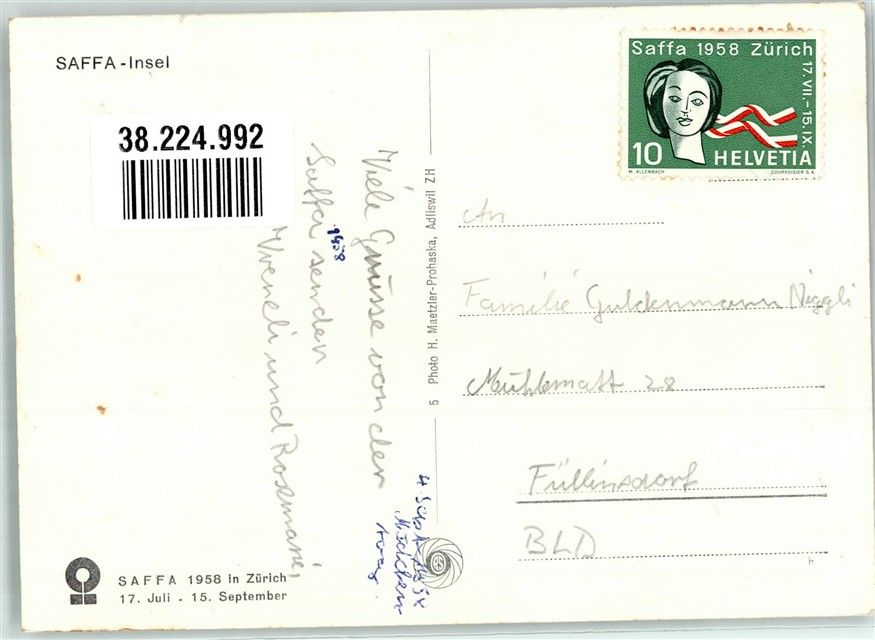 SAFFA-Insel
38.224.992
Viele Grüsse von den
Saffa senden
1958
Vreneli und Rosmarie,
4 Sept 1958
Mädchen
SAFFA 1958 in Zürich
17. Juli - 15. September
5 Photo H. Maetzler-Prohaska, Adliswil ZH
Saffa 1958 Zürich
17.VII.-15.IX.
10 HELVETIA
M. ALLENBACH COURVOISIER S.A.
An
Familie Guldenmann Niggli
Mühlematt 28
Füllinsdorf
BLD
h